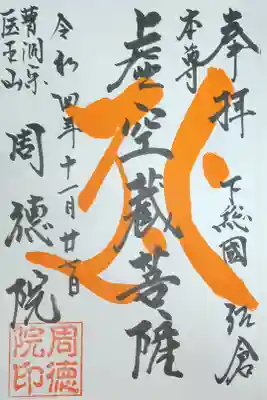 奉拝
下総國
本尊
虚空蔵菩薩
令和四年十一月
曹洞宗
医王山
周徳院
周徳
院印